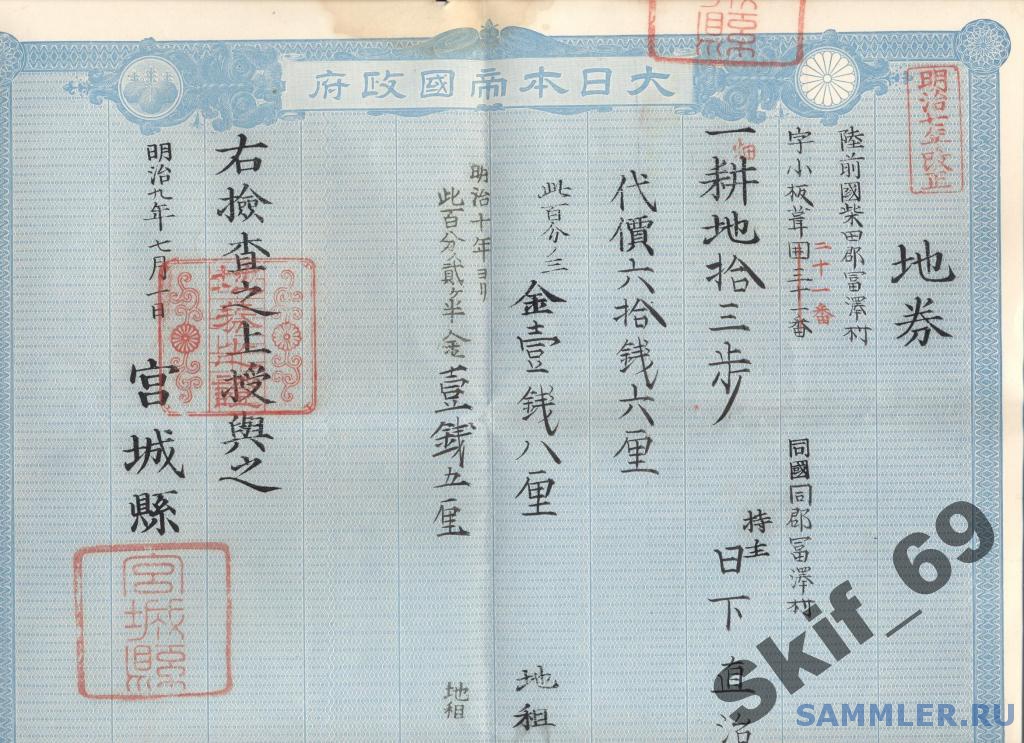 大日本帝國政府
明治七年改正
地券
陸前國柴田郡冨澤村
字小板葺囲三十一番
二十一番
同國同郡冨澤村
持主
日下直治
一耕地拾三歩
畑
代價六拾銭六厘
此百分ノ三
金壹銭八厘
地租
明治十年ヨリ
此百分貳ケ半金壹銭五厘
地租
右撿査之上授與之
明治九年七月一日
宮城縣
宮城縣
Skif_69
SAMMLER.RU